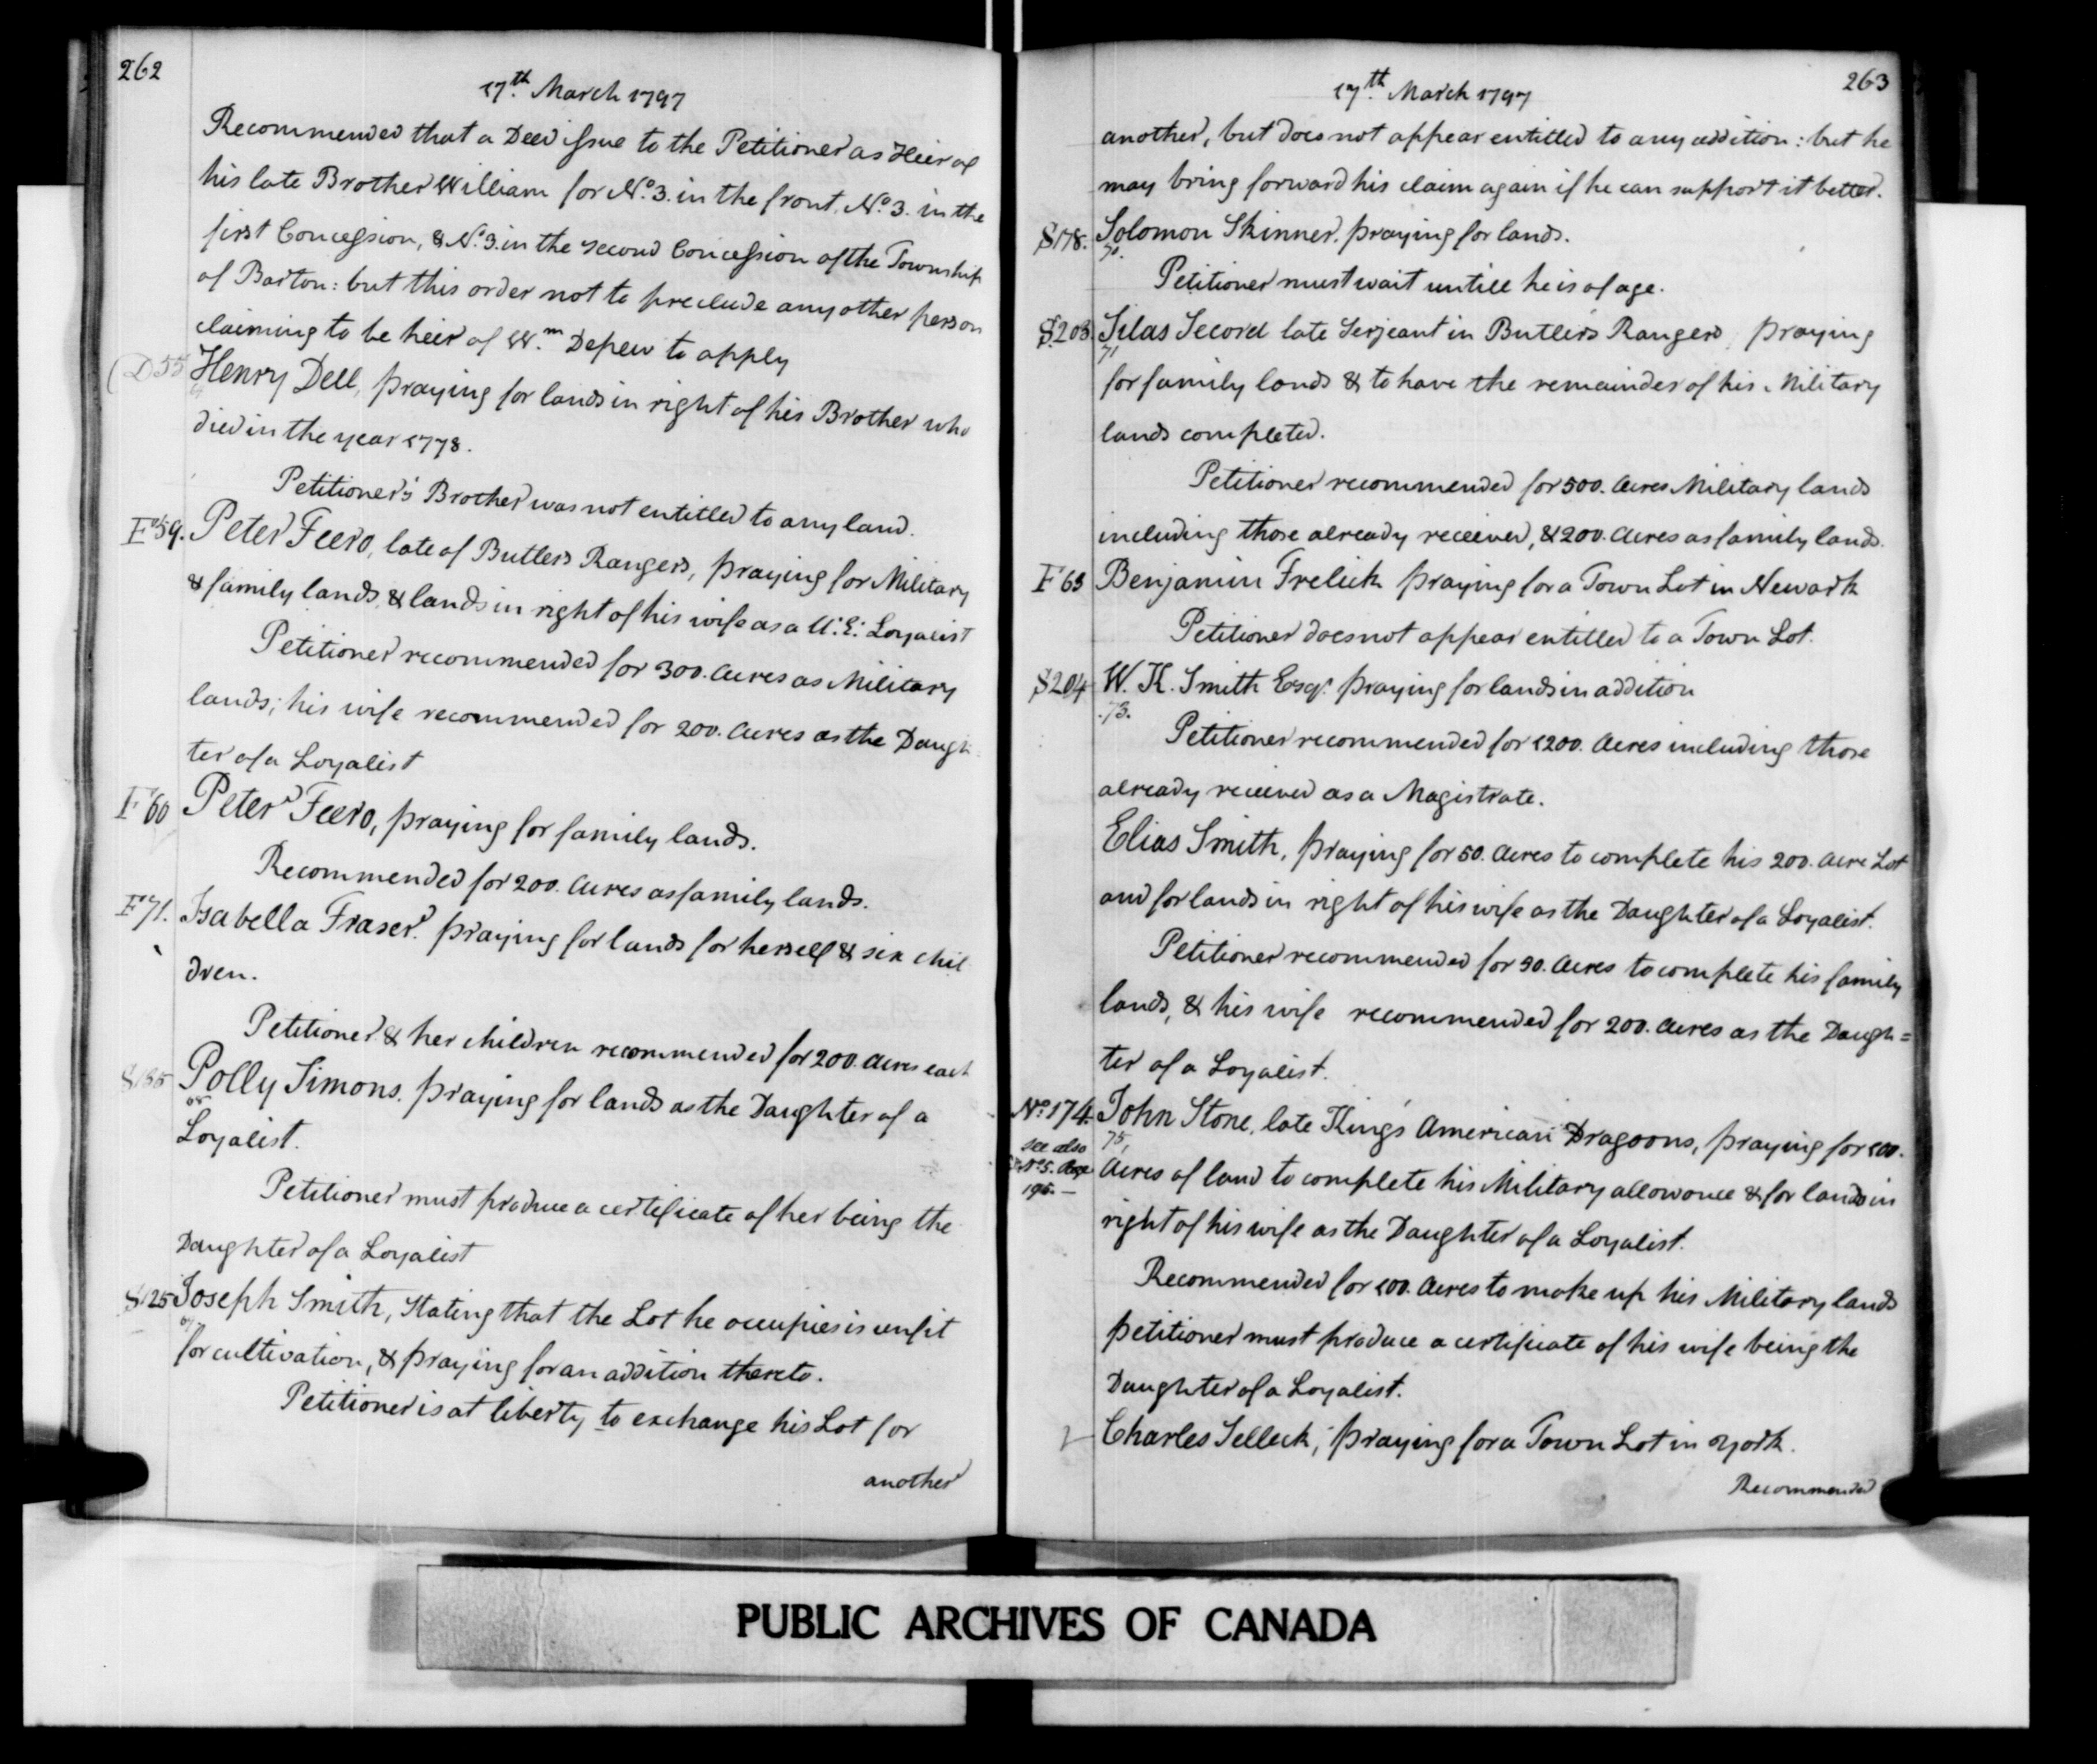 262
17th March 1797
Recommended that a Deed issue to the Petitioner as Heir of
his late Brother William for No. 3. in the front, No. 3. in the
first Concession, & No. 3. in the second Concession of the Township
of Barton: but this order not to preclude any other person
claiming to be heir of Wm. Depew to apply
D55 Henry Dell, praying for lands in right of his Brother who
died in the year 1778.
Petitioner's Brother was not entitled to any land.
F 59. Peter Feero, late of Butlers Rangers, praying for Military
& family lands, & lands in right of his wife as a U: E: Loyalist
Petitioner recommended for 300. Acres as Military
lands; his wife recommended for 200. Acres as the Daugh
ter of a Loyalist
F 60 Peter Feero, praying for family lands.
Recommended for 200. Acres as family lands.
F 71. Isabella Fraser. praying for lands for herself & six chil
dren.
Petitioner & her children recommended for 200. Acres each
Polly Simons. praying for lands as the Daughter of a
Loyalist.
Petitioner must produce a certificate of her being the
Daughter of a Loyalist
S125 Joseph Smith, Stating that the Lot he occupies is unfit
for cultivation, & praying for an addition thereto.
Petitioner is at liberty to exchange his Lot for
another
263
17th March 1797
another, but does not appear entitled to any addition: but he
may bring forward his claim again if he can support it better.
S178. Solomon Skinner. praying for lands.
Petitioner must wait untill he is of age.
S203. Silas Secord late Serjeant in Butler's Rangers, praying
71
for family lands & to have the remainder of his Military
lands completed.
Petitioner recommended for 500. Acres Military lands
including those already received, & 200. Acres as family lands.
F 63 Benjamin Frelick praying for a Town Lot in Newark
Petitioner does not appear entitled to a Town Lot.
S204 W. K. Smith Esqr. praying for lands in addition
73.
Petitioner recommended for 1200. Acres including those
already received as a Magistrate.
Elias Smith, praying for 50. Acres to complete his 200. Acre Lot
and for lands in right of his wife as the Daughter of a Loyalist.
Petitioner recommended for 50. Acres to complete his family
lands, & his wife recommended for 200. Acres as the Daugh=
ter of a Loyalist.
No. 174. John Stone, late King's American Dragoons, praying for 100.
75,
see also
No. 5. Page
195. —
Acres of land to complete his Military allowance & for lands in
right of his wife as the Daughter of a Loyalist.
Recommended for 100. Acres to make up his Military lands
petitioner must produce a certificate of his wife being the
Daughter of a Loyalist.
Charles Selleck, praying for a Town Lot in York.
Recommended
PUBLIC ARCHIVES OF CANADA